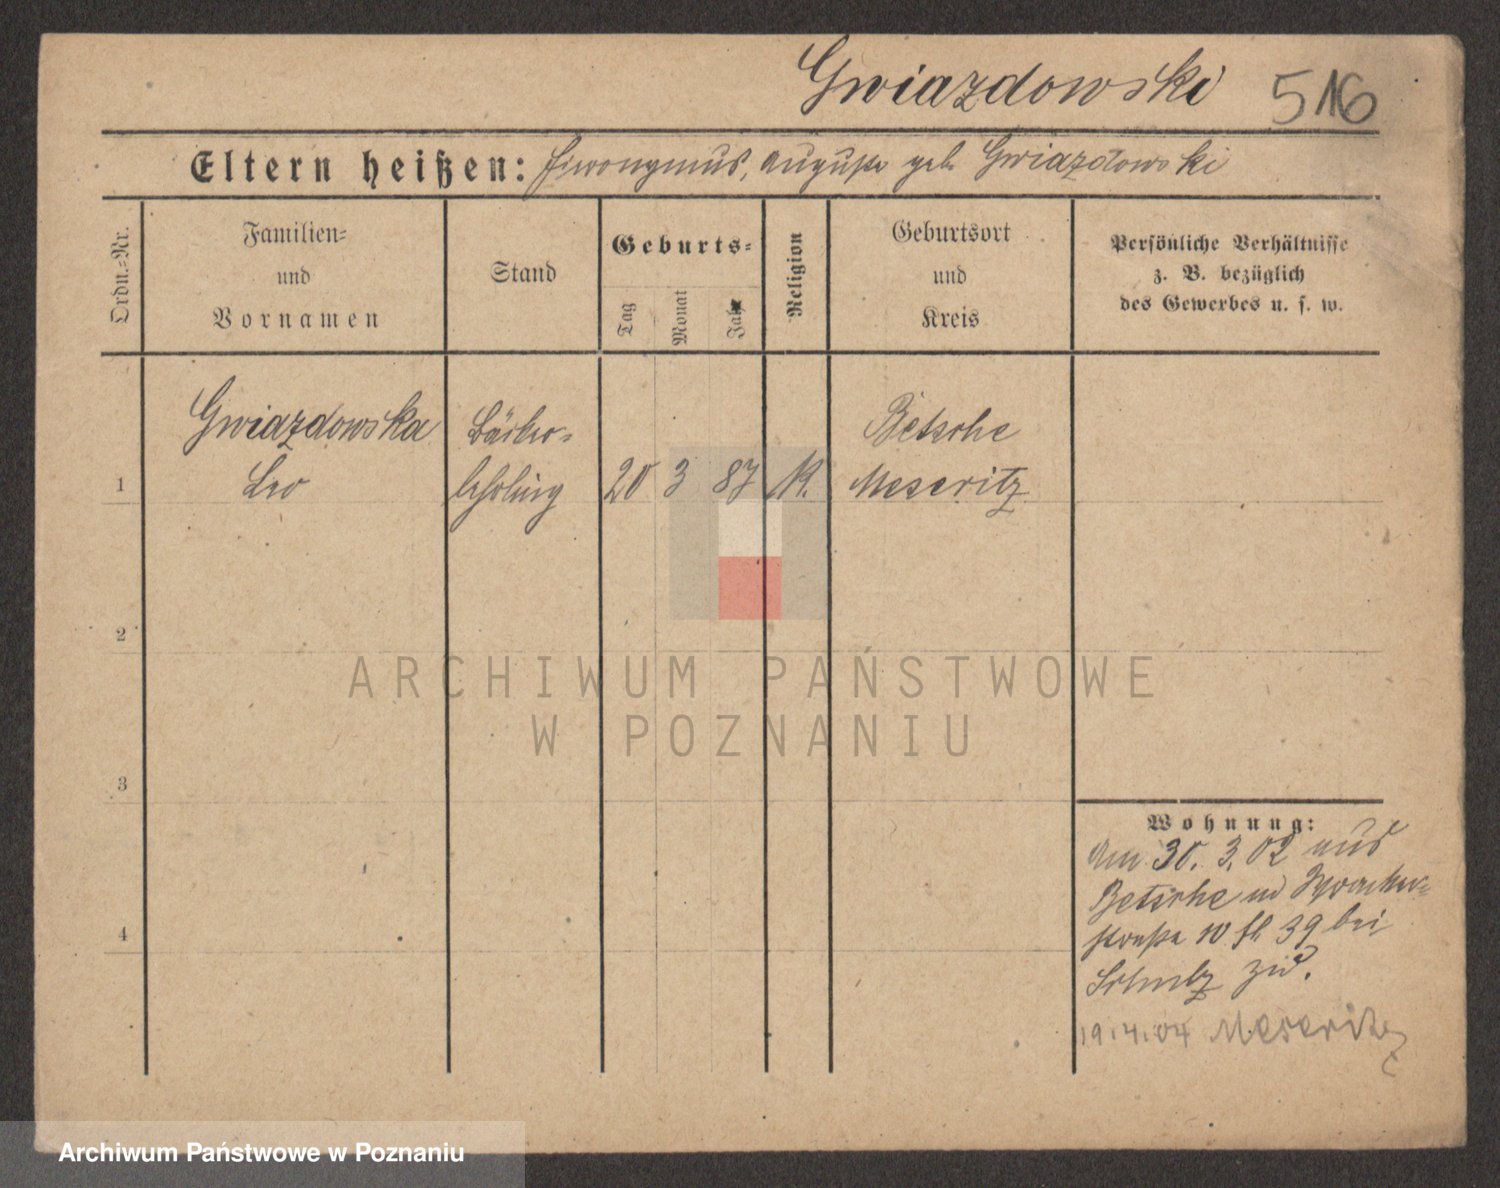 Gwiazdowski 516
Eltern heißen: Hieronymus, Auguste geb. Gwiazdowski
Ordn.-Nr.
Familien-
und
Vornamen
Stand
Geburts-
Tag
Monat
Jahr
Religion
Geburtsort
und
Kreis
Persönliche Verhältnisse
z. B. bezüglich
des Gewerbes u. s. w.
Gwiazdowska Bäcker- Betsche
1 Leo lehrling 20 3 87 K. Meseritz
2
3
4
Wohnung:
Am 30. 3. 02 aus
Betsche
straße 10 39 bei
Schulz zu.
19.4.04 Meseritz
ARCHIWUM PAŃSTWOWE
W POZNANIU
Archiwum Państwowe w Poznaniu